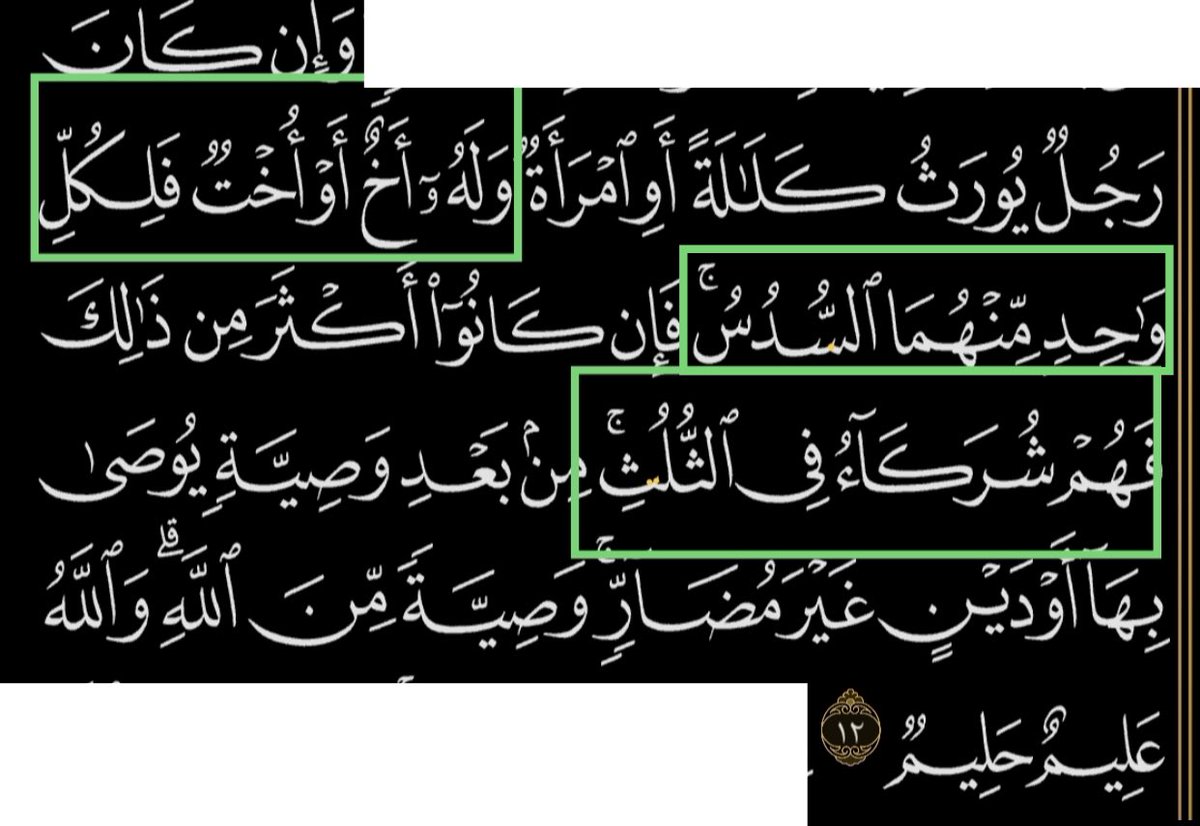 وَإِن كَانَ
رَجُلٌ يُورَثُ كَلَـٰلَةً أَوِ ٱمْرَأَةٌ وَلَهُۥٓ أَخٌ أَوْ أُخْتٌ فَلِكُلِّ
وَٰحِدٍ مِّنْهُمَا ٱلسُّدُسُ ۚ فَإِن كَانُوٓا۟ أَكْثَرَ مِن ذَٰلِكَ
فَهُمْ شُرَكَآءُ فِى ٱلثُّلُثِ ۚ مِنۢ بَعْدِ وَصِيَّةٍ يُوصَىٰ
بِهَآ أَوْ دَيْنٍ غَيْرَ مُضَآرٍّ ۚ وَصِيَّةً مِّنَ ٱللَّهِ ۗ وَٱللَّهُ
عَلِيمٌ حَلِيمٌ ١٢